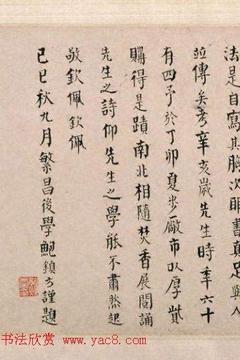 法是自寫其胸次明書真足與人
並傳矣考辛亥歲先生時年六十
有四予於丁卯夏步廠市以厚貲
購得是蹟南北相隨焚香展閱誦
先生之詩仰先生之學能不肅然起
敬欽佩欽佩
己巳秋九月繁昌後學鮑鎮方謹題
书法欣赏
www.yac8.com